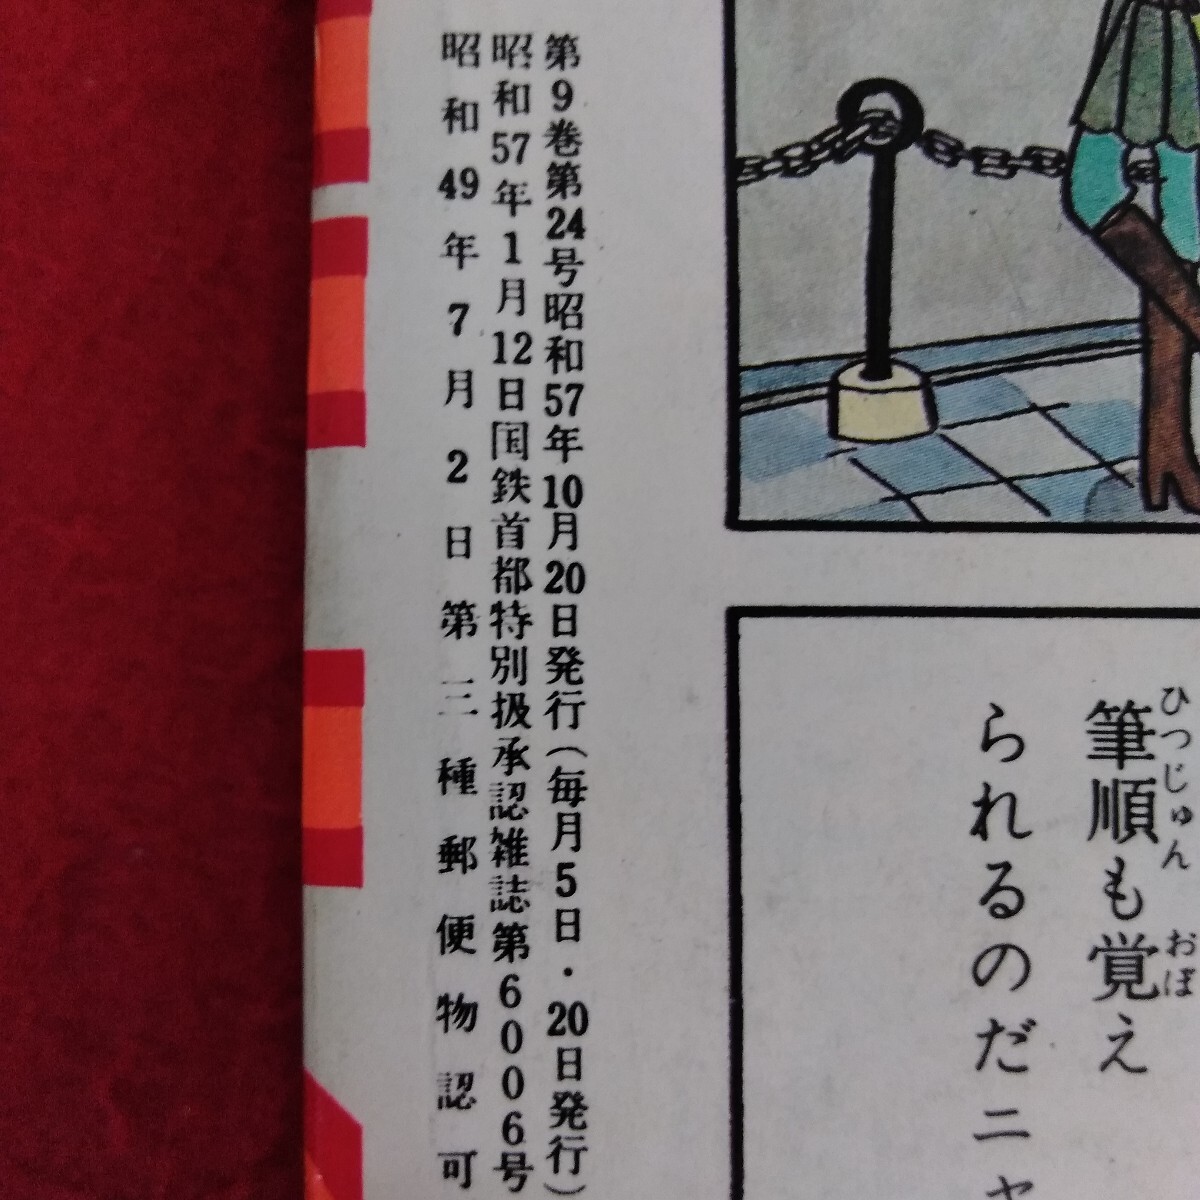 第9巻第24号昭和57年10月20日発行(毎月5日・20日発行)
昭和57年1月12日国鉄首都特別扱承認雑誌第6006号
昭和49年7月2日第三種郵便物認可
筆順も覚え
ひつじゅん
おぼ
られるのだニャ